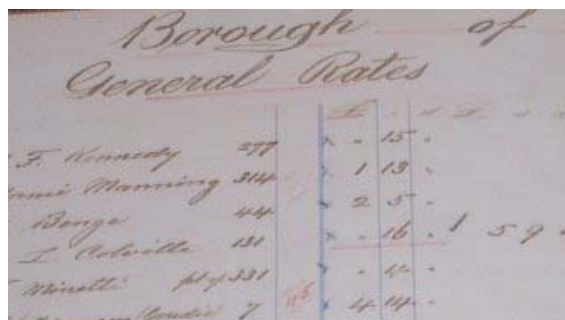 Borough of
General Rates
F. Kennedy 277 - 15 -
Manning 314 1 13 -
Benge 44 2 5 -
I. Colville 131 - 16 - 1 5 9 -
Minetti 331 -
7 4 14 -